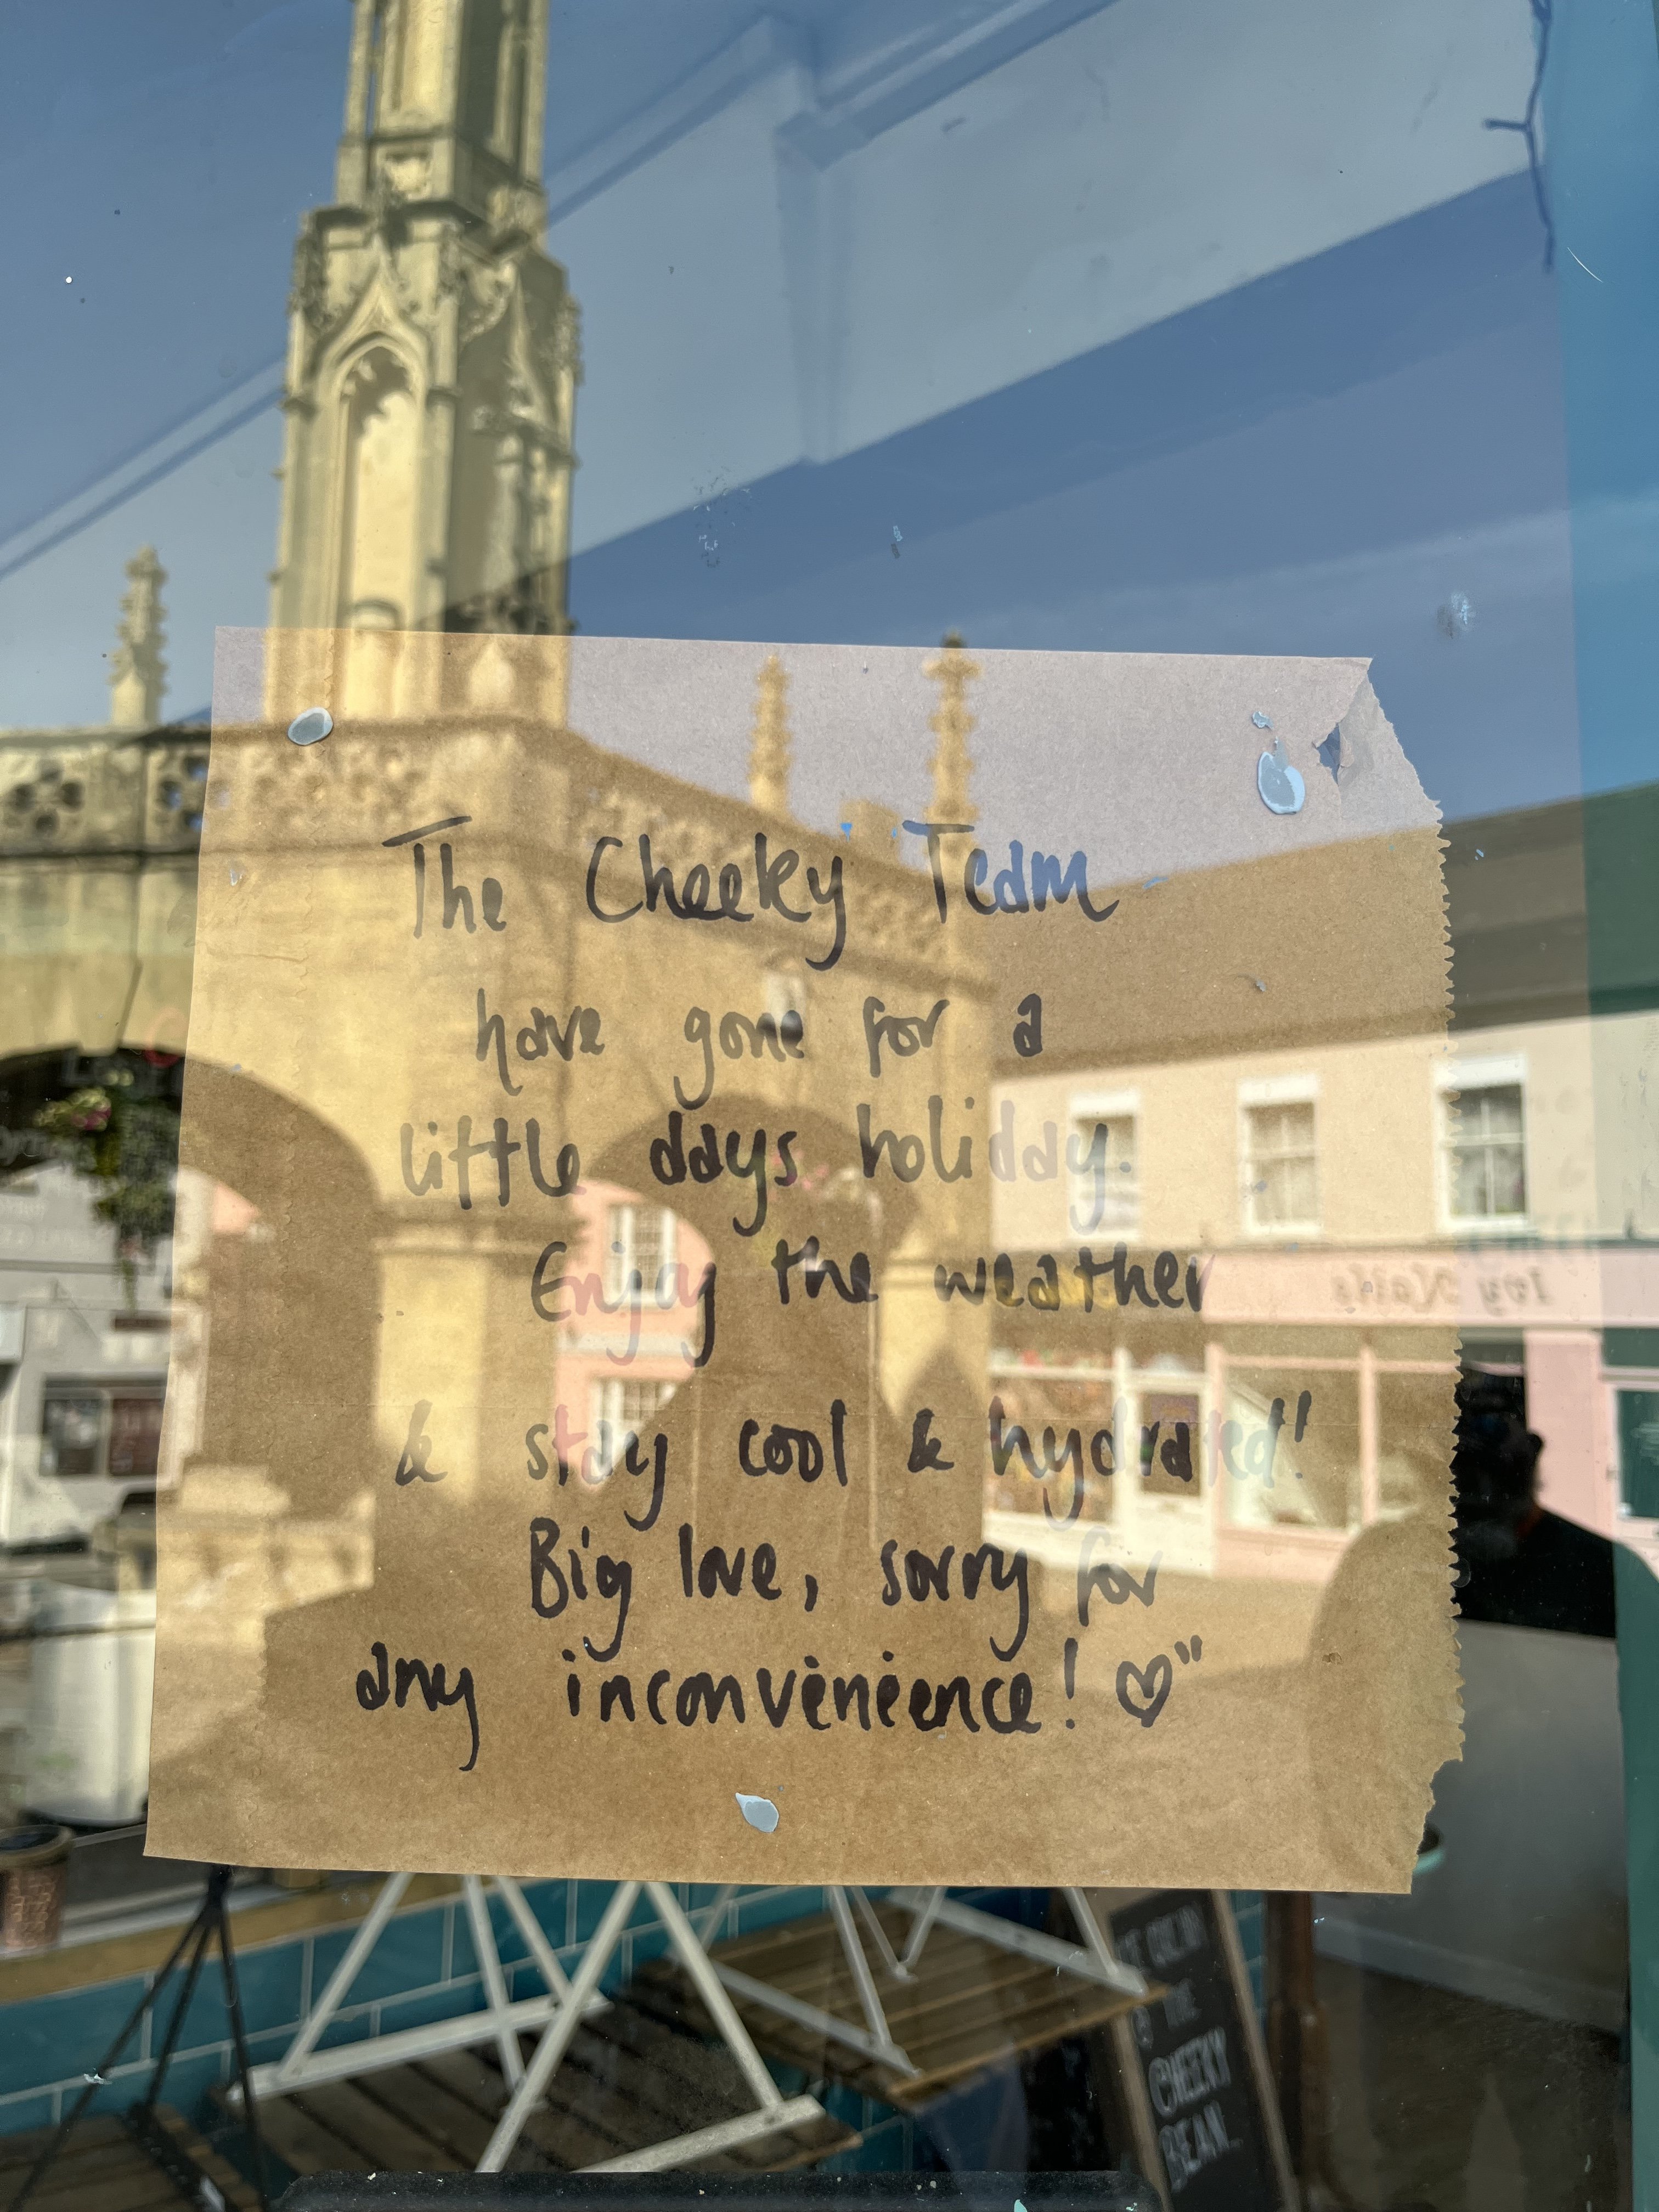 The Cheeky Team
have gone for a
little days holiday.
Enjoy the weather
& stay cool & hydrated!
Big love, sorry for
any inconvenience! ♡"
Ivy Nails
THE
CHEEKY
BEAN